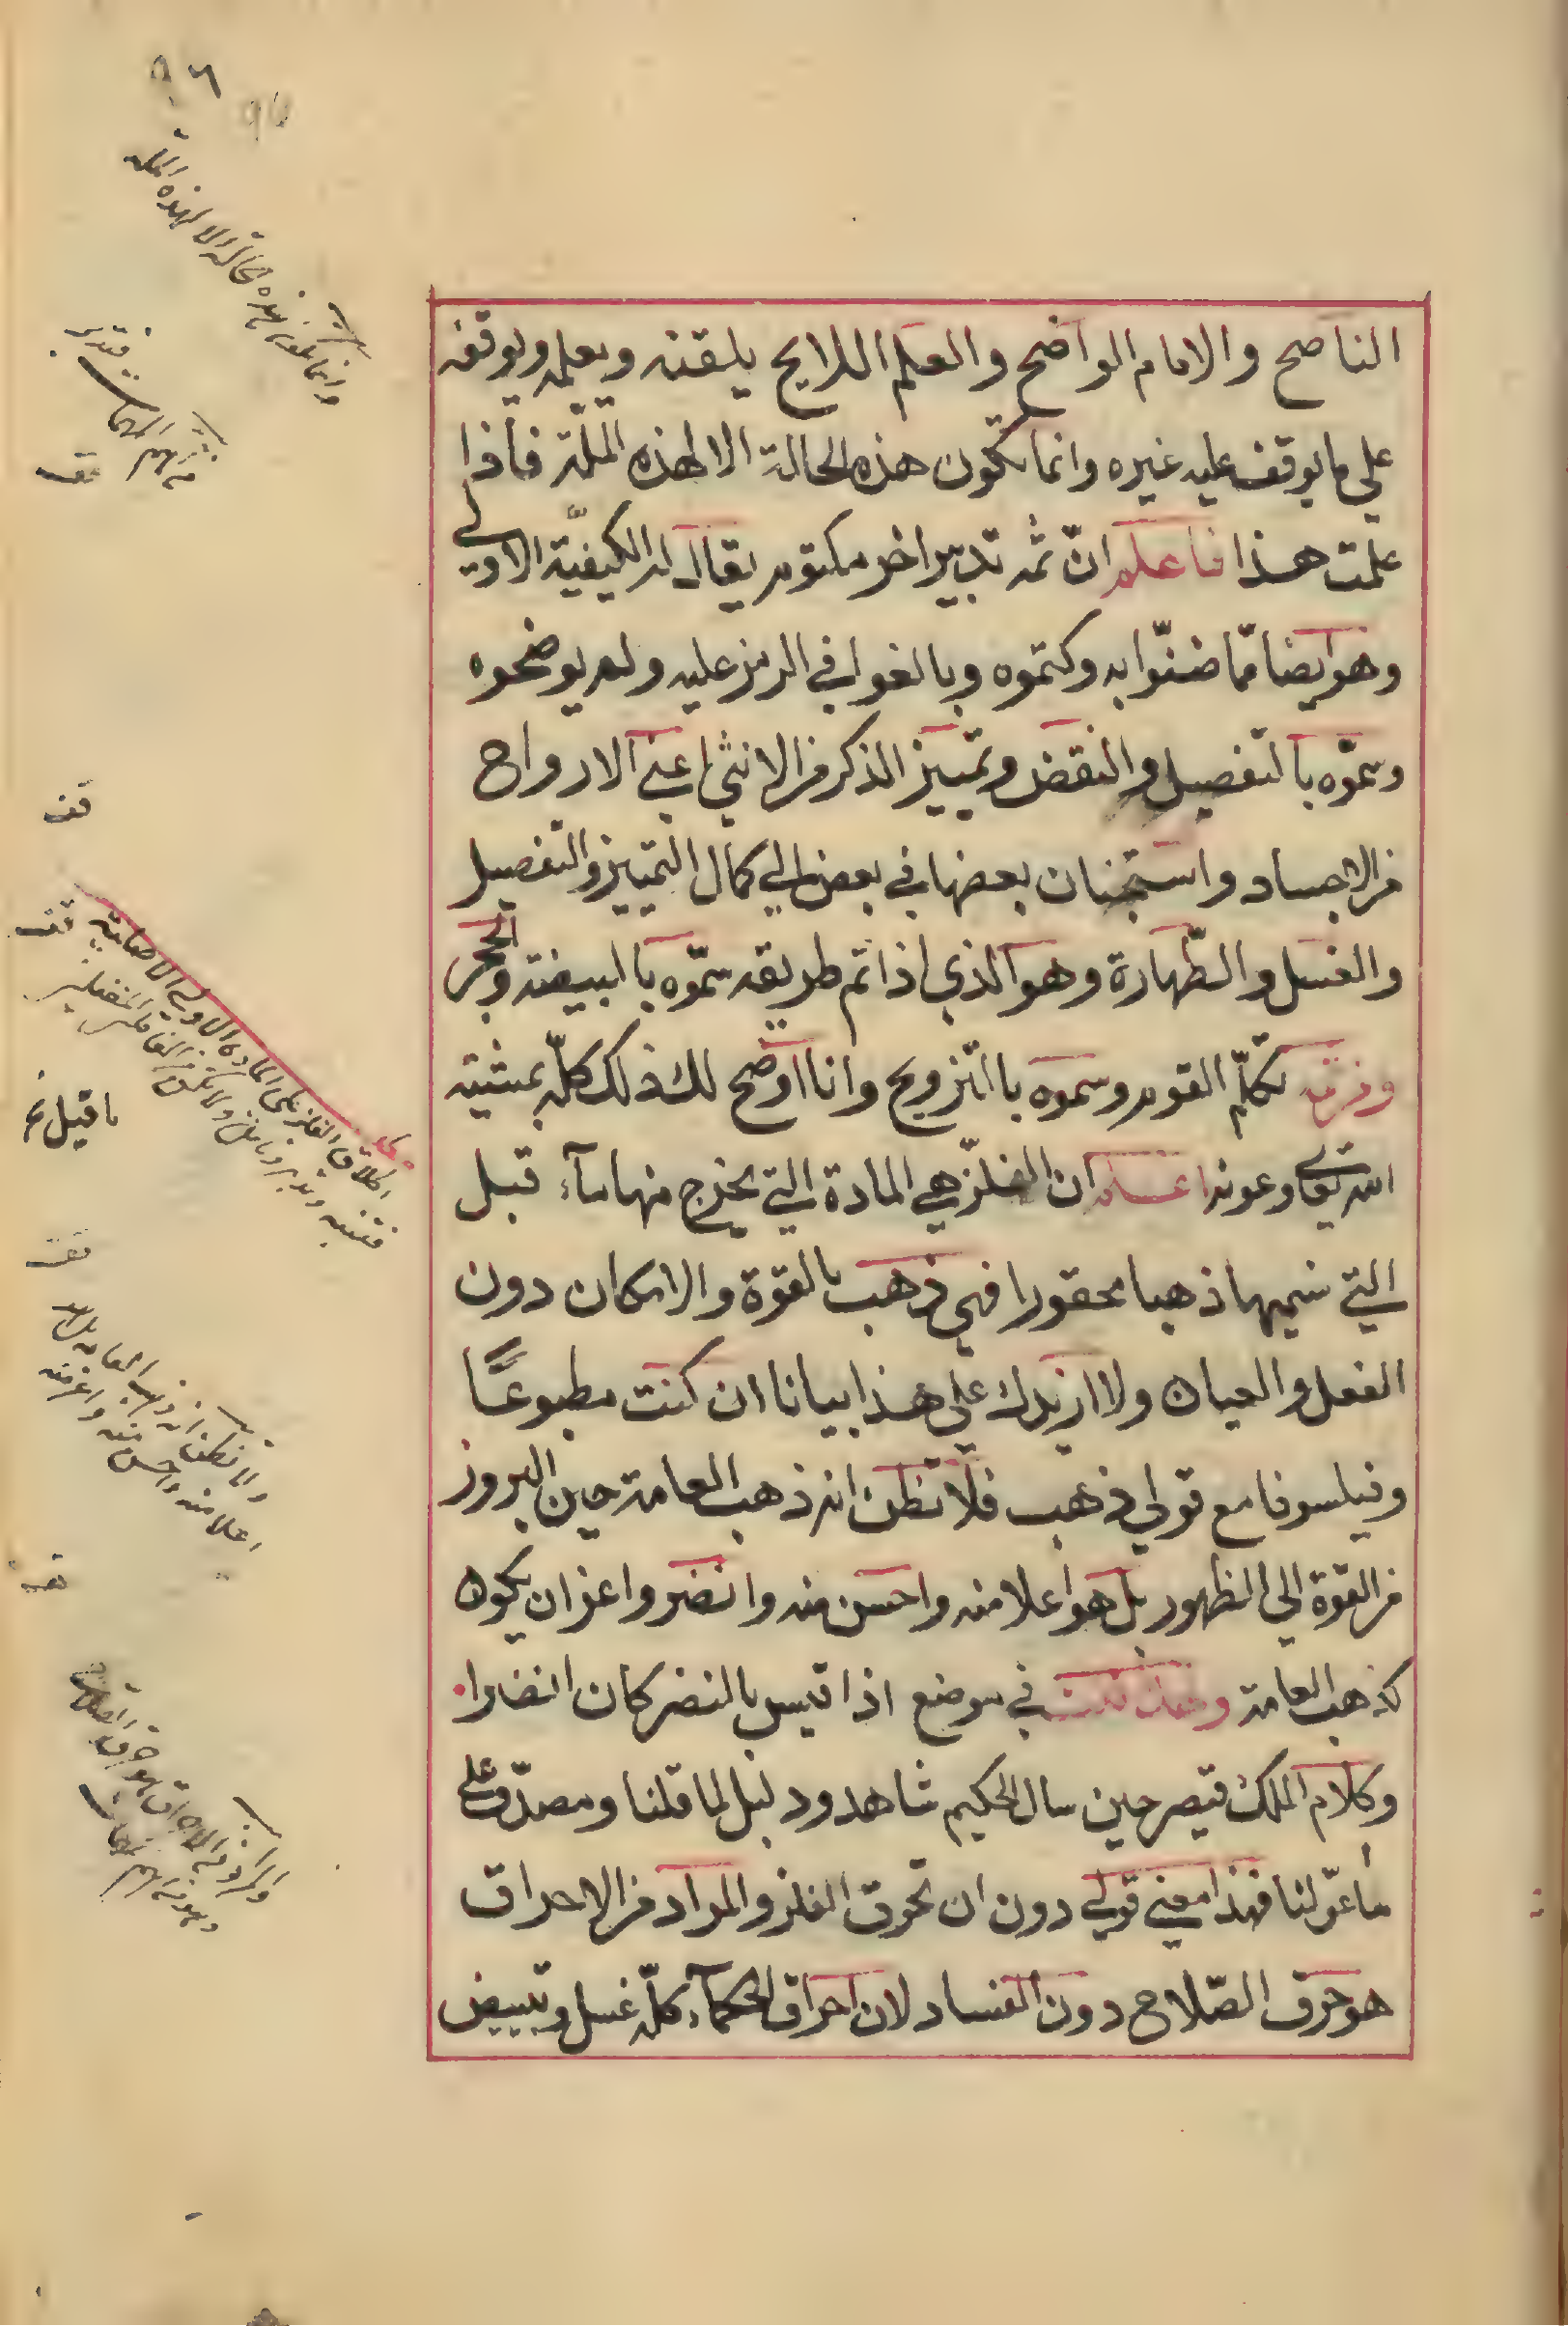 ٩٦
الناصح والامام الواضح والعلم اللايح يلقنه ويعلمه ويوقفه
علي ما يوقف عليه غيره وانما تكون هذه الحالة الا لهذه الملّة فاذا
علمت هذا فاعلم انّ ثمه تدبير اخر مكتوم يقال له الكيفيّة الاولي
وهو ايضا ممّا ضنّوا به وكتموه وبالغوا في الرمز عليه ولم يوضحوه
وسمّوه بالتفصيل والنقض وتمييز الذكر من الانثي اعني الارواح
من الاجساد واستجنان بعضها في بعض الي كمال التمييز والتفصيل
والغسل والطّهارة وهو الذي اذا تم طريقه سمّوه بالبيضة والحجر
تكلّم القوم وسموه بالتّزويج وانا اوضح لك ذلك كلّه بمشيّة
الله تعالي وعونه اعلم ان الفلزّ هي المادة التي يخرج منها ماء قبل
التي نسميها ذهبا محقورا فهي ذهب بالقوّة والامكان دون
الفعل والعيان ولا ازيدك علي هذا بيانا ان كنت مطبوعًا
وفيلسوفا مع قولي ذهب فلا تظن انه ذهب العامة حين البروز
من القوّة الي الظهور بل هو اعلا منه واحسن منه وانضر واعز ان يكون
كذهب العامة في موضع اذا قيس بالنضر كان انضرا
وكلام الملك قيصر حين سال الحكيم شاهد ودليل لما قلنا ومصدّق علي
ما عوّلنا فهذا معني قولي دون ان تحرق الفلز والمراد من الاحراق
هو حرق الصّلاح دون الفساد لان احراق الحكماء كلّه غسل وتبييض
وانما تكون هذه الحالة الا لهذه الملة
قف
قف
قف
اطلاق الفلز علي المادة الاولي
قف
ولا تظن انه ذهب العامة بل هو
اعلا منه واحسن منه واعز منه
والمراد من الاحراق هو حرق الصلاح